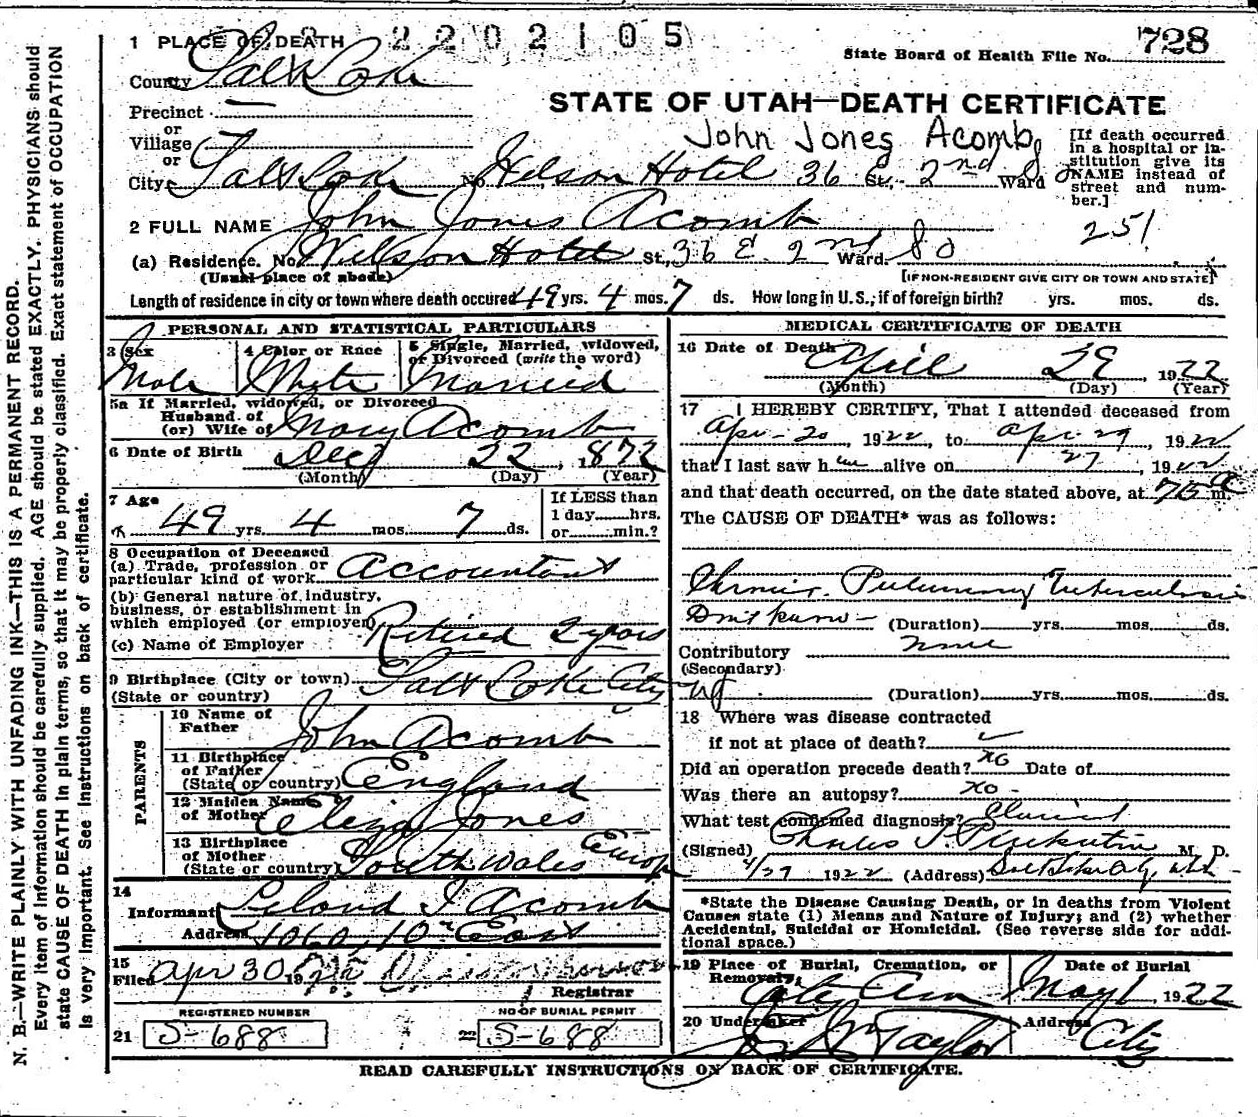 1 PLACE OF DEATH 2202105
State Board of Health File No. 728
County Salt Lake
STATE OF UTAH—DEATH CERTIFICATE
Precinct —
or
Village
or
John Jones Acomb
City Salt Lake No. Wilson Hotel 36 E St., 2nd Ward
[If death occurred in a hospital or institution give its NAME instead of street and number.]
251
2 FULL NAME John Jones Acomb
(a) Residence. No. Willson Hotel St, 36 E. 2nd Ward. 80
(Usual place of abode)
[IF NON-RESIDENT GIVE CITY OR TOWN AND STATE]
Length of residence in city or town where death occured 49 yrs. 4 mos. 7 ds. How long in U.S.; if of foreign birth? yrs. mos. ds.
PERSONAL AND STATISTICAL PARTICULARS
3 Sex Male
4 Color or Race White
5 Single, Married, widowed, or Divorced (write the word) Married
5a If Married, widowed, or Divorced
Husband of
(or) Wife of Mary Acomb
6 Date of Birth Dec 22, 1872
(Month) (Day) (Year)
7 Age 49 yrs. 4 mos. 7 ds.
If LESS than
1 day hrs.
or min.?
8 Occupation of Deceased
(a) Trade, profession or
particular kind of work Accountant
(b) General nature of industry,
business, or establishment in
which employed (or employer) Retired 2 years
(c) Name of Employer
9 Birthplace (City or town) Salt Lake City
(State or country) Ut
PARENTS
10 Name of
Father John Acomb
11 Birthplace
of Father
(State or country) England
12 Maiden Name
of Mother Eliza Jones
13 Birthplace
of Mother
(State or country) South Wales Europ
14
Informant Leland J Acomb
Address 1060, 10th East
15
Filed Apr 30 1922
Registrar
REGISTERED NUMBER
21 S-688
NO OF BURIAL PERMIT
22 S-688
MEDICAL CERTIFICATE OF DEATH
16 Date of Death April 29, 1922
(Month) (Day) (Year)
17 I HEREBY CERTIFY, That I attended deceased from
Apr-20, 1922, to Apr-29, 1922
that I last saw him alive on 27, 1922
and that death occurred, on the date stated above, at 715 a m.
The CAUSE OF DEATH* was as follows:
Chronic Pulmonary Tuberculosis
Don't know - (Duration) yrs. mos. ds.
Contributory none
(Secondary)
(Duration) yrs. mos. ds.
18 Where was disease contracted
if not at place of death?
Did an operation precede death? No Date of
Was there an autopsy? No -
What test confirmed diagnosis? Clinical
(Signed) Charles M. D.
4/29 1922 (Address) Salt Lake City, Utah
*State the Disease Causing Death, or in deaths from Violent
Causes state (1) Means and Nature of Injury; and (2) whether
Accidental, Suicidal or Homicidal. (See reverse side for additional space.)
19 Place of Burial, Cremation, or
Removal City Cem
Date of Burial
May 1, 1922
20 Undertaker Taylor
Address City
READ CAREFULLY INSTRUCTIONS ON BACK OF CERTIFICATE.
N. B.—WRITE PLAINLY WITH UNFADING INK—THIS IS A PERMANENT RECORD.
Every item of information should be carefully supplied. AGE should be stated EXACTLY. PHYSICIANS should
state CAUSE OF DEATH in plain terms, so that it may be properly classified. Exact statement of OCCUPATION
is very important. See instructions on back of certificate.